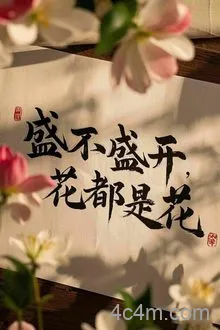 盛不盛开，
花都是花
4c4m.com